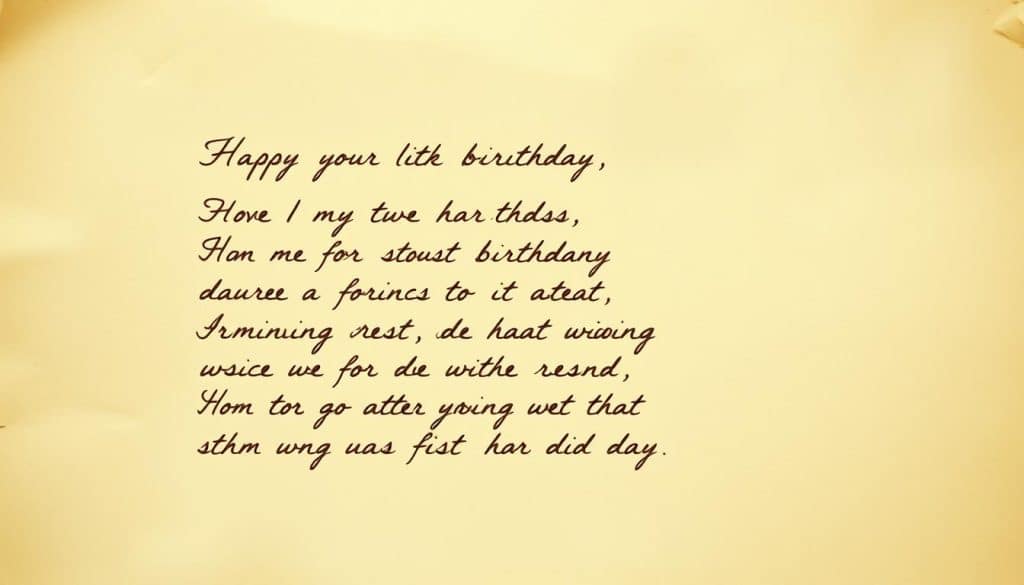 Happy your litk birithday,
Hove I my twe har thdss,
Han me for stoust birthdany
dauree a forincs to it ateat,
Irminuing rest, de haat wicoing
wsice we for de withe resnd,
Hom tor go atter yving wet that
sthm wng uas fist har did day.